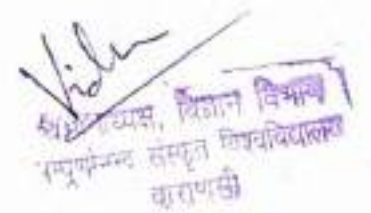 विज्ञान विभाग
सम्पूर्णानन्द संस्कृत विश्वविद्यालय
वाराणसी